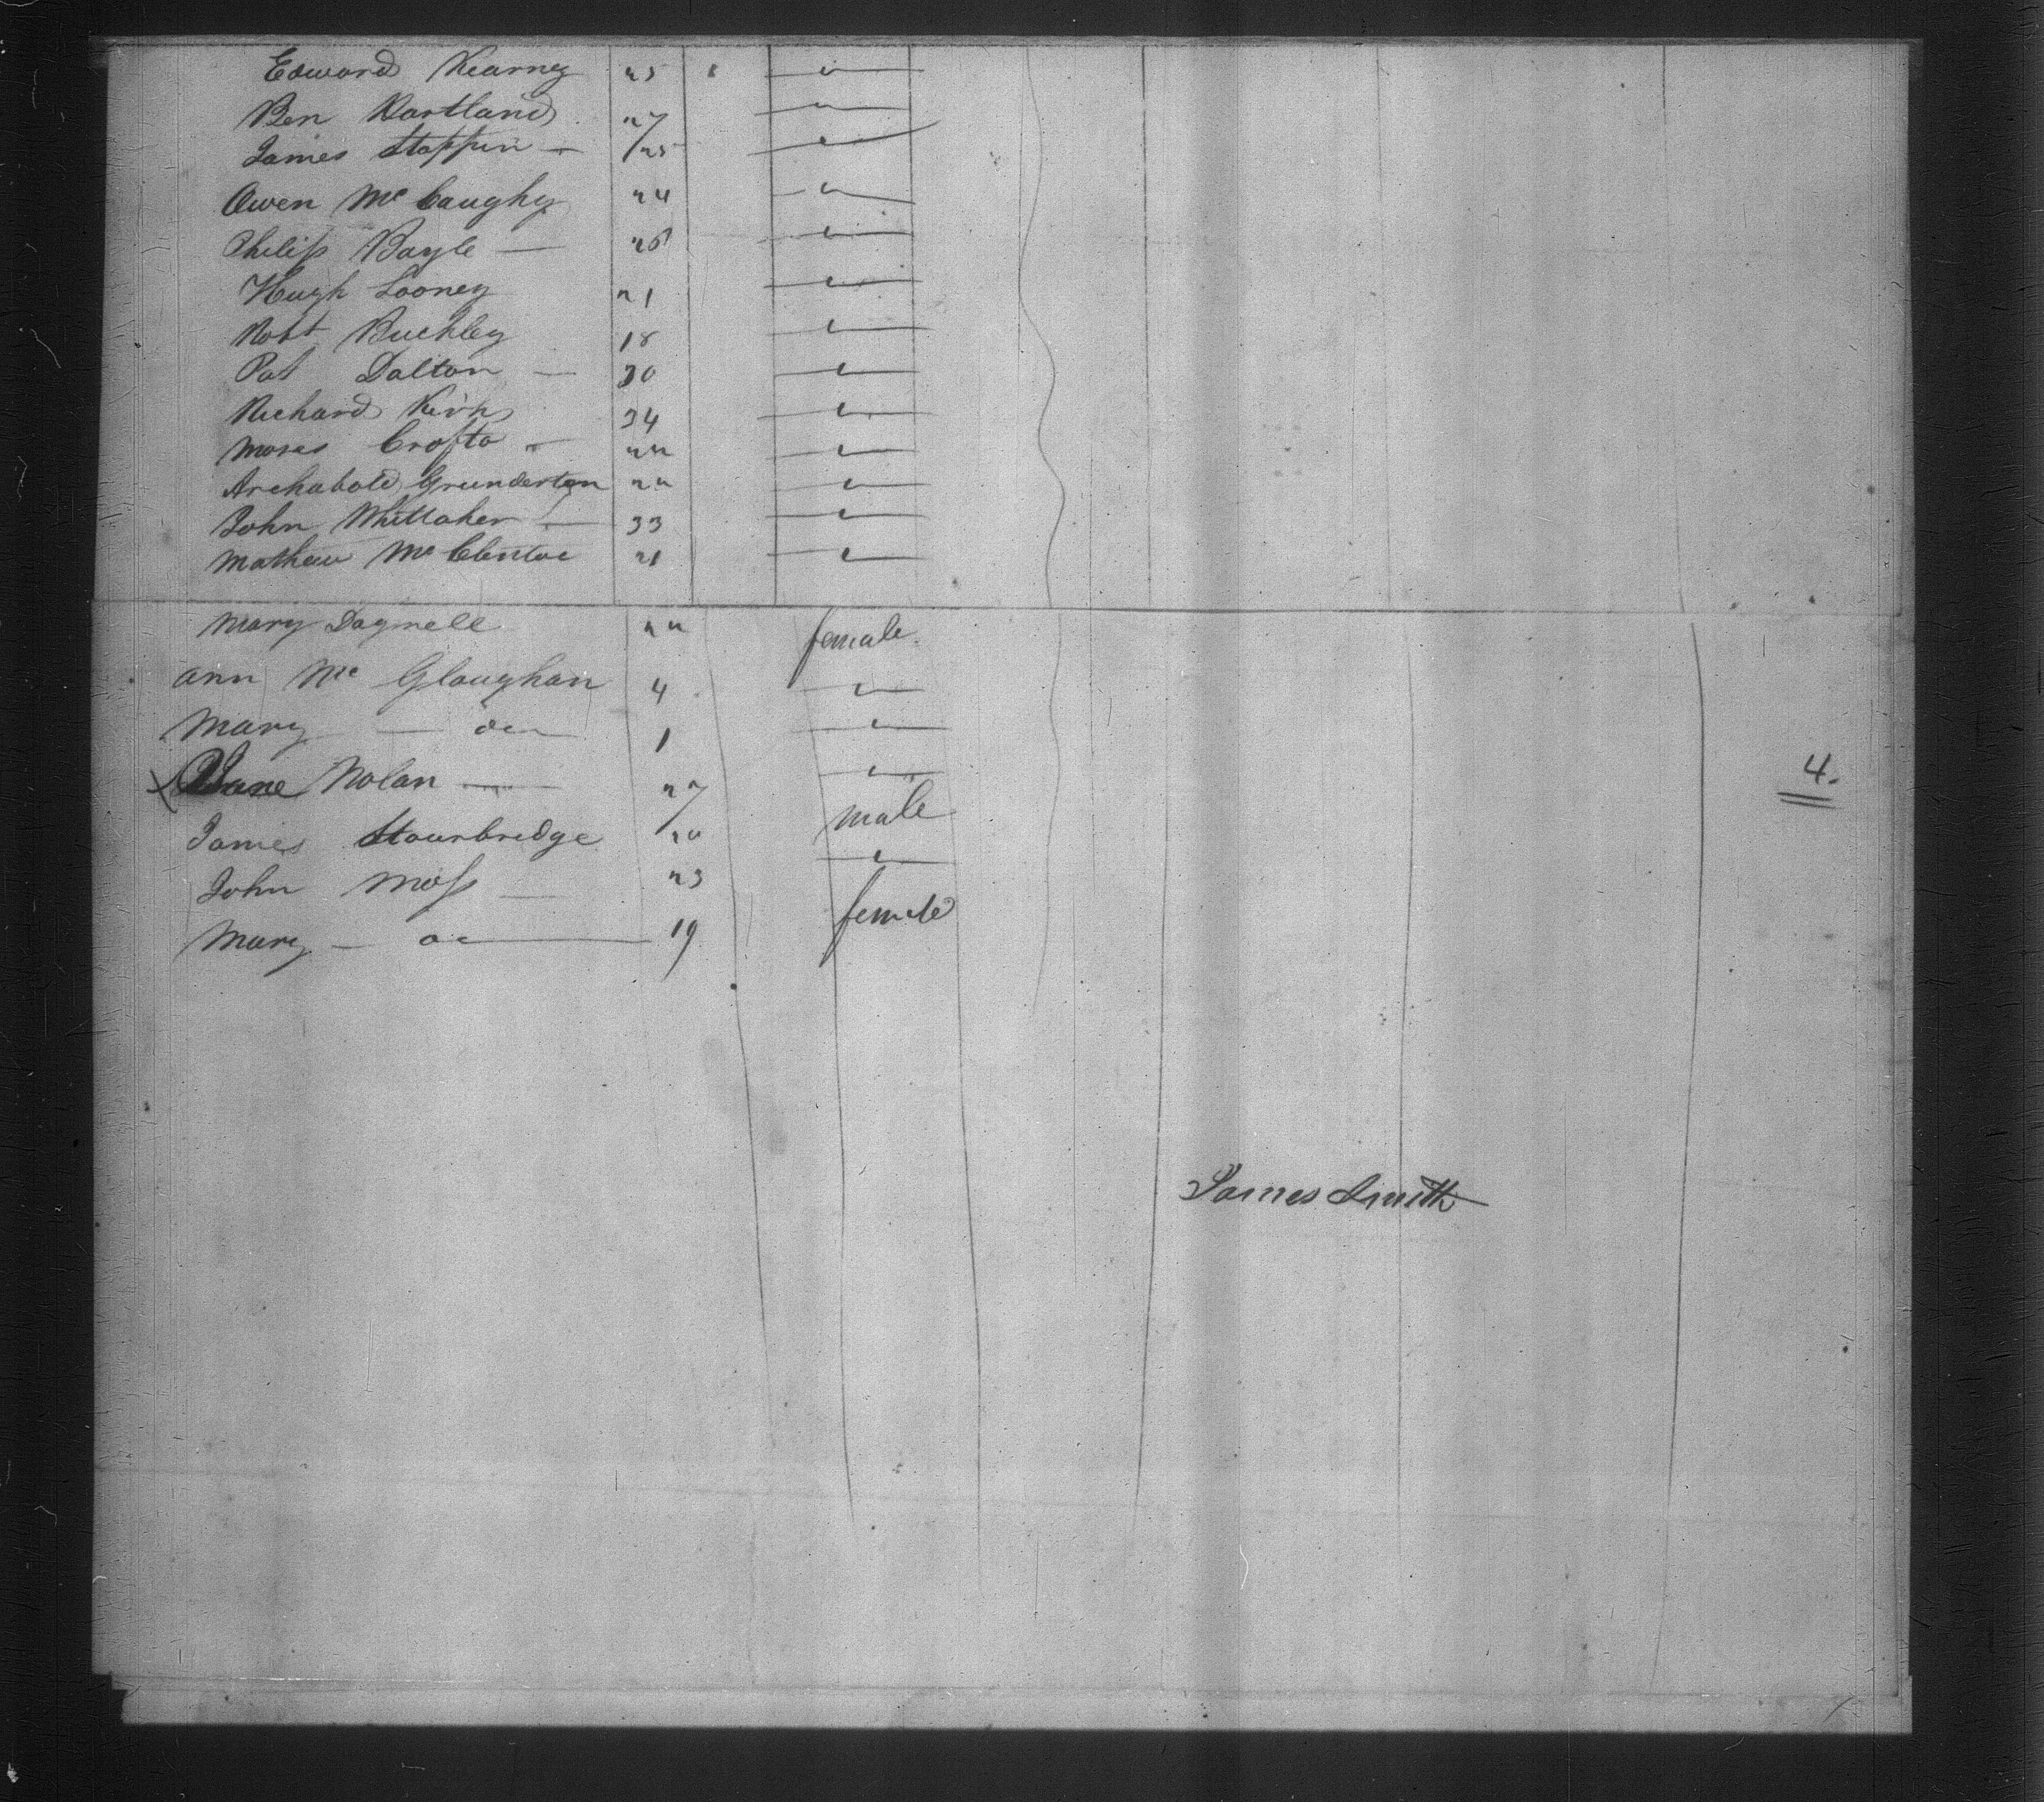 Edward Kearney 25 "
Ben Hartland 27 "
James Stappin — 25 "
Owen Mc Caughy 24 "
Philip Bayle — 26 "
Hugh Looney 21 "
Robt Buckley 18 "
Pat Dalton — 30 "
Richard Kirk 34 "
Moses Crofta — 22 "
Archabold Grunderton 22 "
John Whittaker — 33 "
Mathew Mc Clintoc 21 "
Mary Dagnell 22 female
Ann Mc Glaughan 4 "
Mary — do 1 "
Jane Nolan — 27 "
4.
James Stourbridge 20 male
John Moss — 23 "
Mary — do — 19 female
James Smith